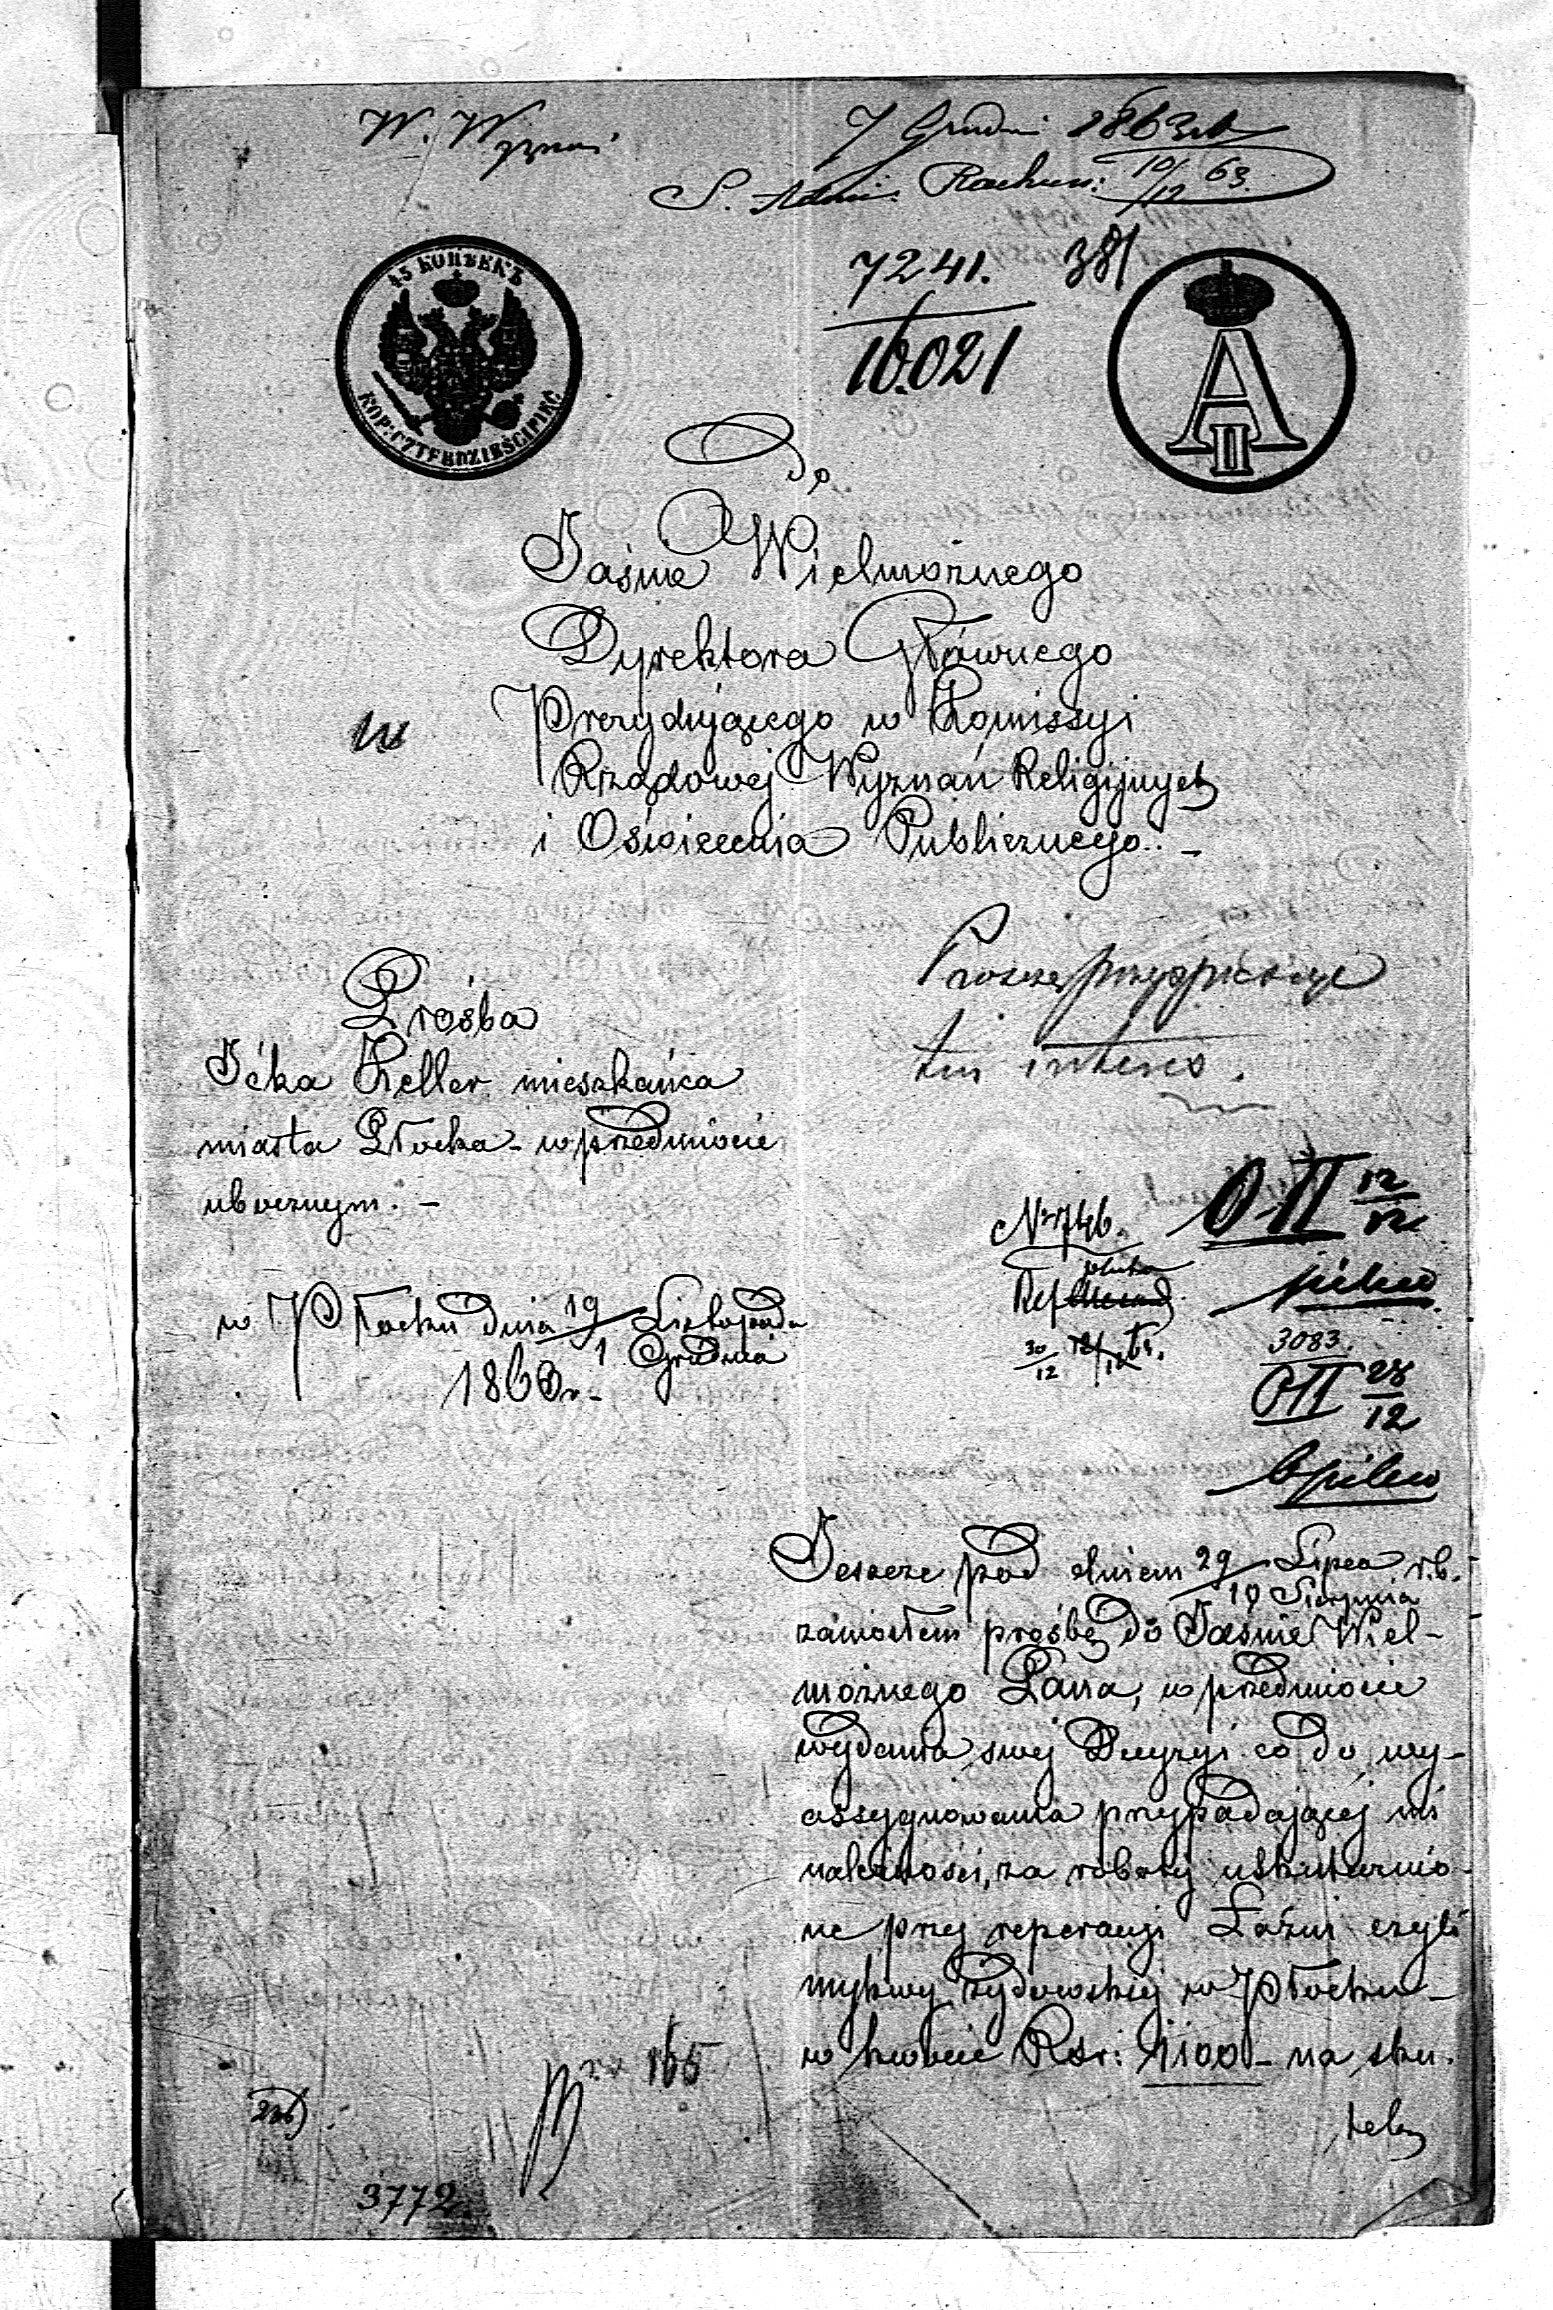 W. Wyznań
7 Grudni 1863 r
S. Adm. Rachun: 10/12 63.
7241. 381
10.021
45 КОПѢЕКЪ
KOP: CZTERDZIEŚCI PIĘĆ
A II
Do
Jaśnie Wielmożnego
Dyrektora Głównego
Prezydującego w Kommissyi
Rządowej Wyznań Religijnych
i Oświecenia Publicznego. –
w
Proszę przyspieszyć
ten interes.
Prośba
Icka Keller mieszkańca
miasta Płocka – w przedmiocie
ubocznym. –
w Płocku dnia 19 Listopada
1 Grudnia
1863 r. –
O.II 12/12
pilno
3083.
O.II 28/12
b pilno
Jeszcze pod dniem 29 Lipca r.b.
10 Sierpnia
zaniosłem prośbę do Jaśnie Wiel-
możnego Pana, w przedmiocie
wydania swej Decyzyi co do wy-
assygnowania przypadającej mi
należności, za roboty uskutecznio-
ne przy reperacyi Łaźni czyli
mykwy żydowskiej w Płocku –
w kwocie Rsr: 1100 – na sku-
tek
165
3772